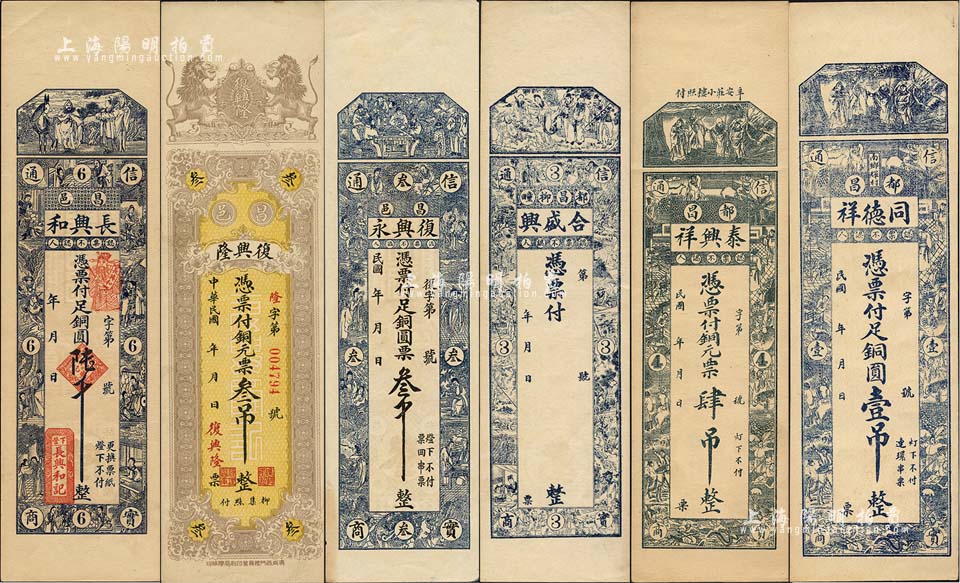 上海陽明拍賣
www.yangmingauction.com
信 6 通
昌邑
長興和
認票不認人
憑票付足銅圓陸吊整
字第 號
年 月 日
更換票紙
燈下不付
長興和記
6 6
實 6 商
復興隆
叁 叁
昌邑
復興隆
隆字第 號
004794
憑票付銅元票叁吊整
中華民國 年 月 日 復興隆票
柳集照付
叁 叁
信 叁 通
昌邑
復興永
認票不認人
復字第 號
憑票付足銅圓票叁吊整
民國 年 月 日
燈下不付
票回串票
叁 叁
實 叁 商
信 3 通
都昌柳疃
合盛興
認票不認人
第 號
憑票付
年 月 日
整
票
3 3
實 3 商
車安莊小撻照付
信 通
都昌
泰興祥
認票不認人
字第 號
憑票付銅元票肆吊整
民國 年 月 日
燈下不付
票
4 4
商
信 通
都昌
同德祥
認票不認人
字第 號
憑票付足銅圓壹吊整
民國 年 月 日
灯下不付
連環串票
票
壹 壹
實 商
上海陽明拍賣
www.yangmingauction.com